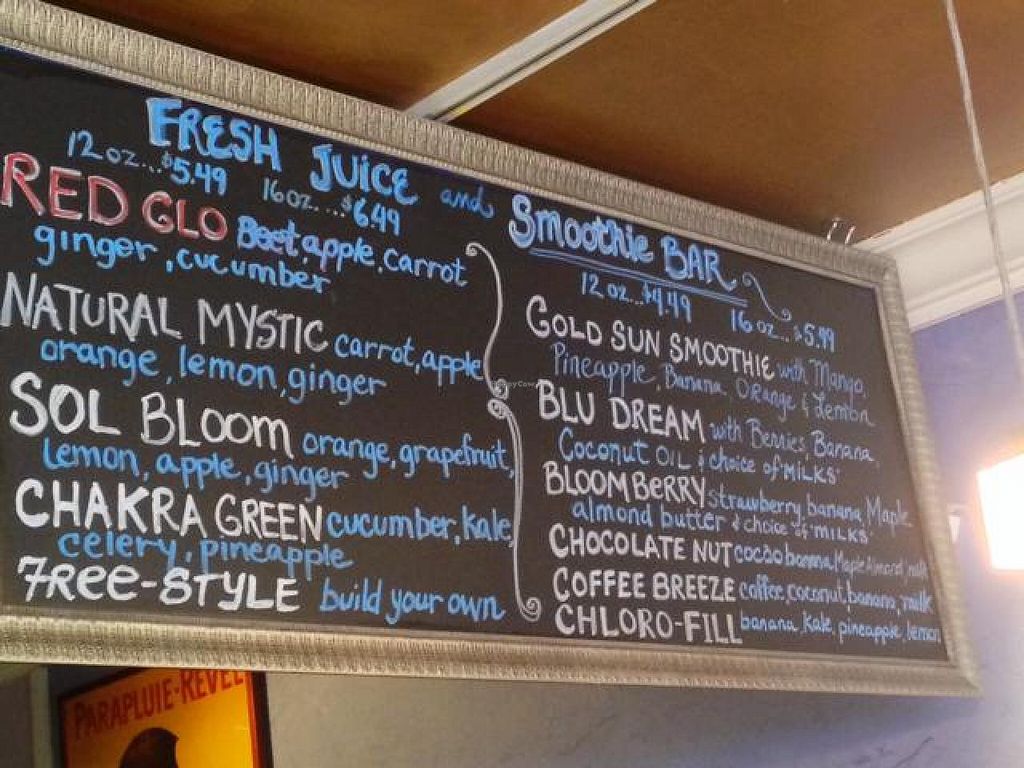 FRESH JUICE and Smoothie BAR
12 oz...$5.49 16 oz....$6.49
RED GLO Beet, apple, carrot
ginger, cucumber
NATURAL MYSTIC carrot, apple
orange, lemon, ginger
SOL BLOOM orange, grapefruit,
lemon, apple, ginger
CHAKRA GREEN cucumber, kale,
celery, pineapple
7REE-STYLE build your own
12 oz...$4.49 16 oz...$5.99
GOLD SUN SMOOTHIE with Mango,
Pineapple, Banana, Orange & Lemon
BLU DREAM with Berries, Banana,
Coconut OIL & choice of "MILKS"
BLOOMBERRY strawberry, banana, Maple
almond butter & choice of "MILKS"
CHOCOLATE NUT cacao, banana, Maple Almond, milk
COFFEE BREEZE coffee, coconut, banana, milk
CHLORO-FILL banana, kale, pineapple, lemon
PARAPLUIE-REVEL